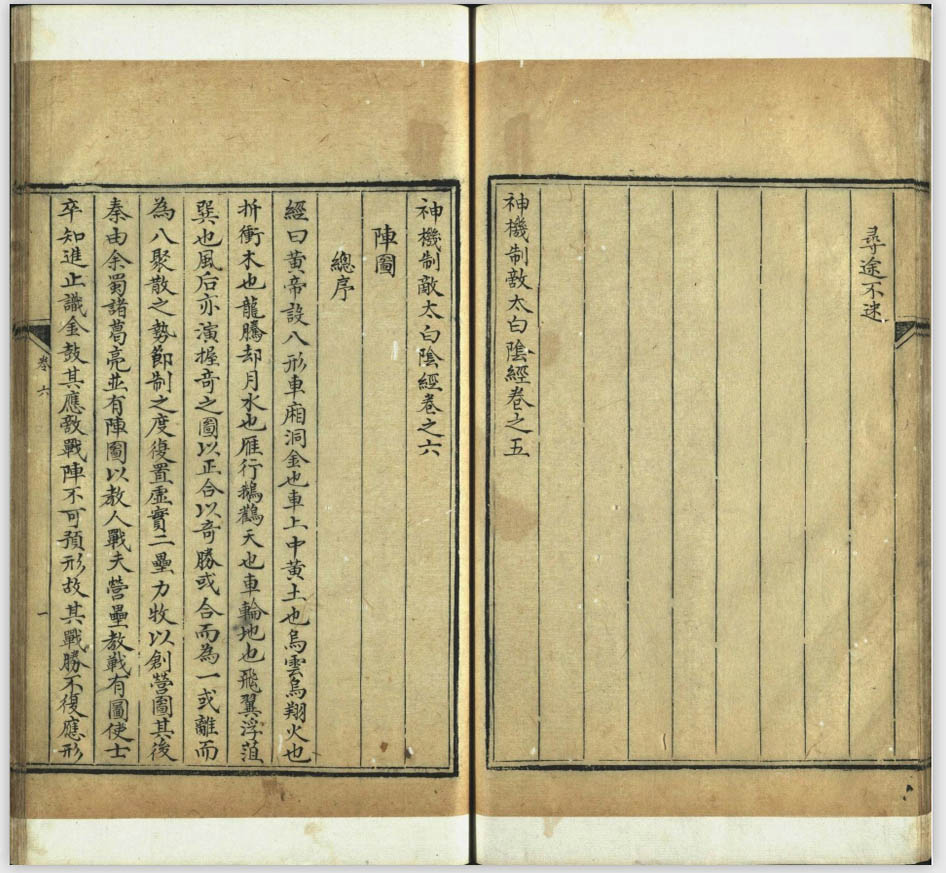 尋途不迷
神機制敵太白陰經卷之五
神機制敵太白陰經卷之六
陣圖
總序
經曰黃帝設八形車廂洞金也車上中黃土也烏雲烏翔火也
折衝木也龍騰却月水也雁行鵝鸛天也車輪地也飛翼浮菹
巽也風后亦演握奇之圖以正合以奇勝或合而為一或離而
為八聚散之勢節制之度復置虛實二壘力牧以創營圖其後
秦由余蜀諸葛亮並有陣圖以教人戰夫營壘教戰有圖使士
卒知進止識金鼓其應敵戰陣不可預形故其戰勝不復應形
卷六
一